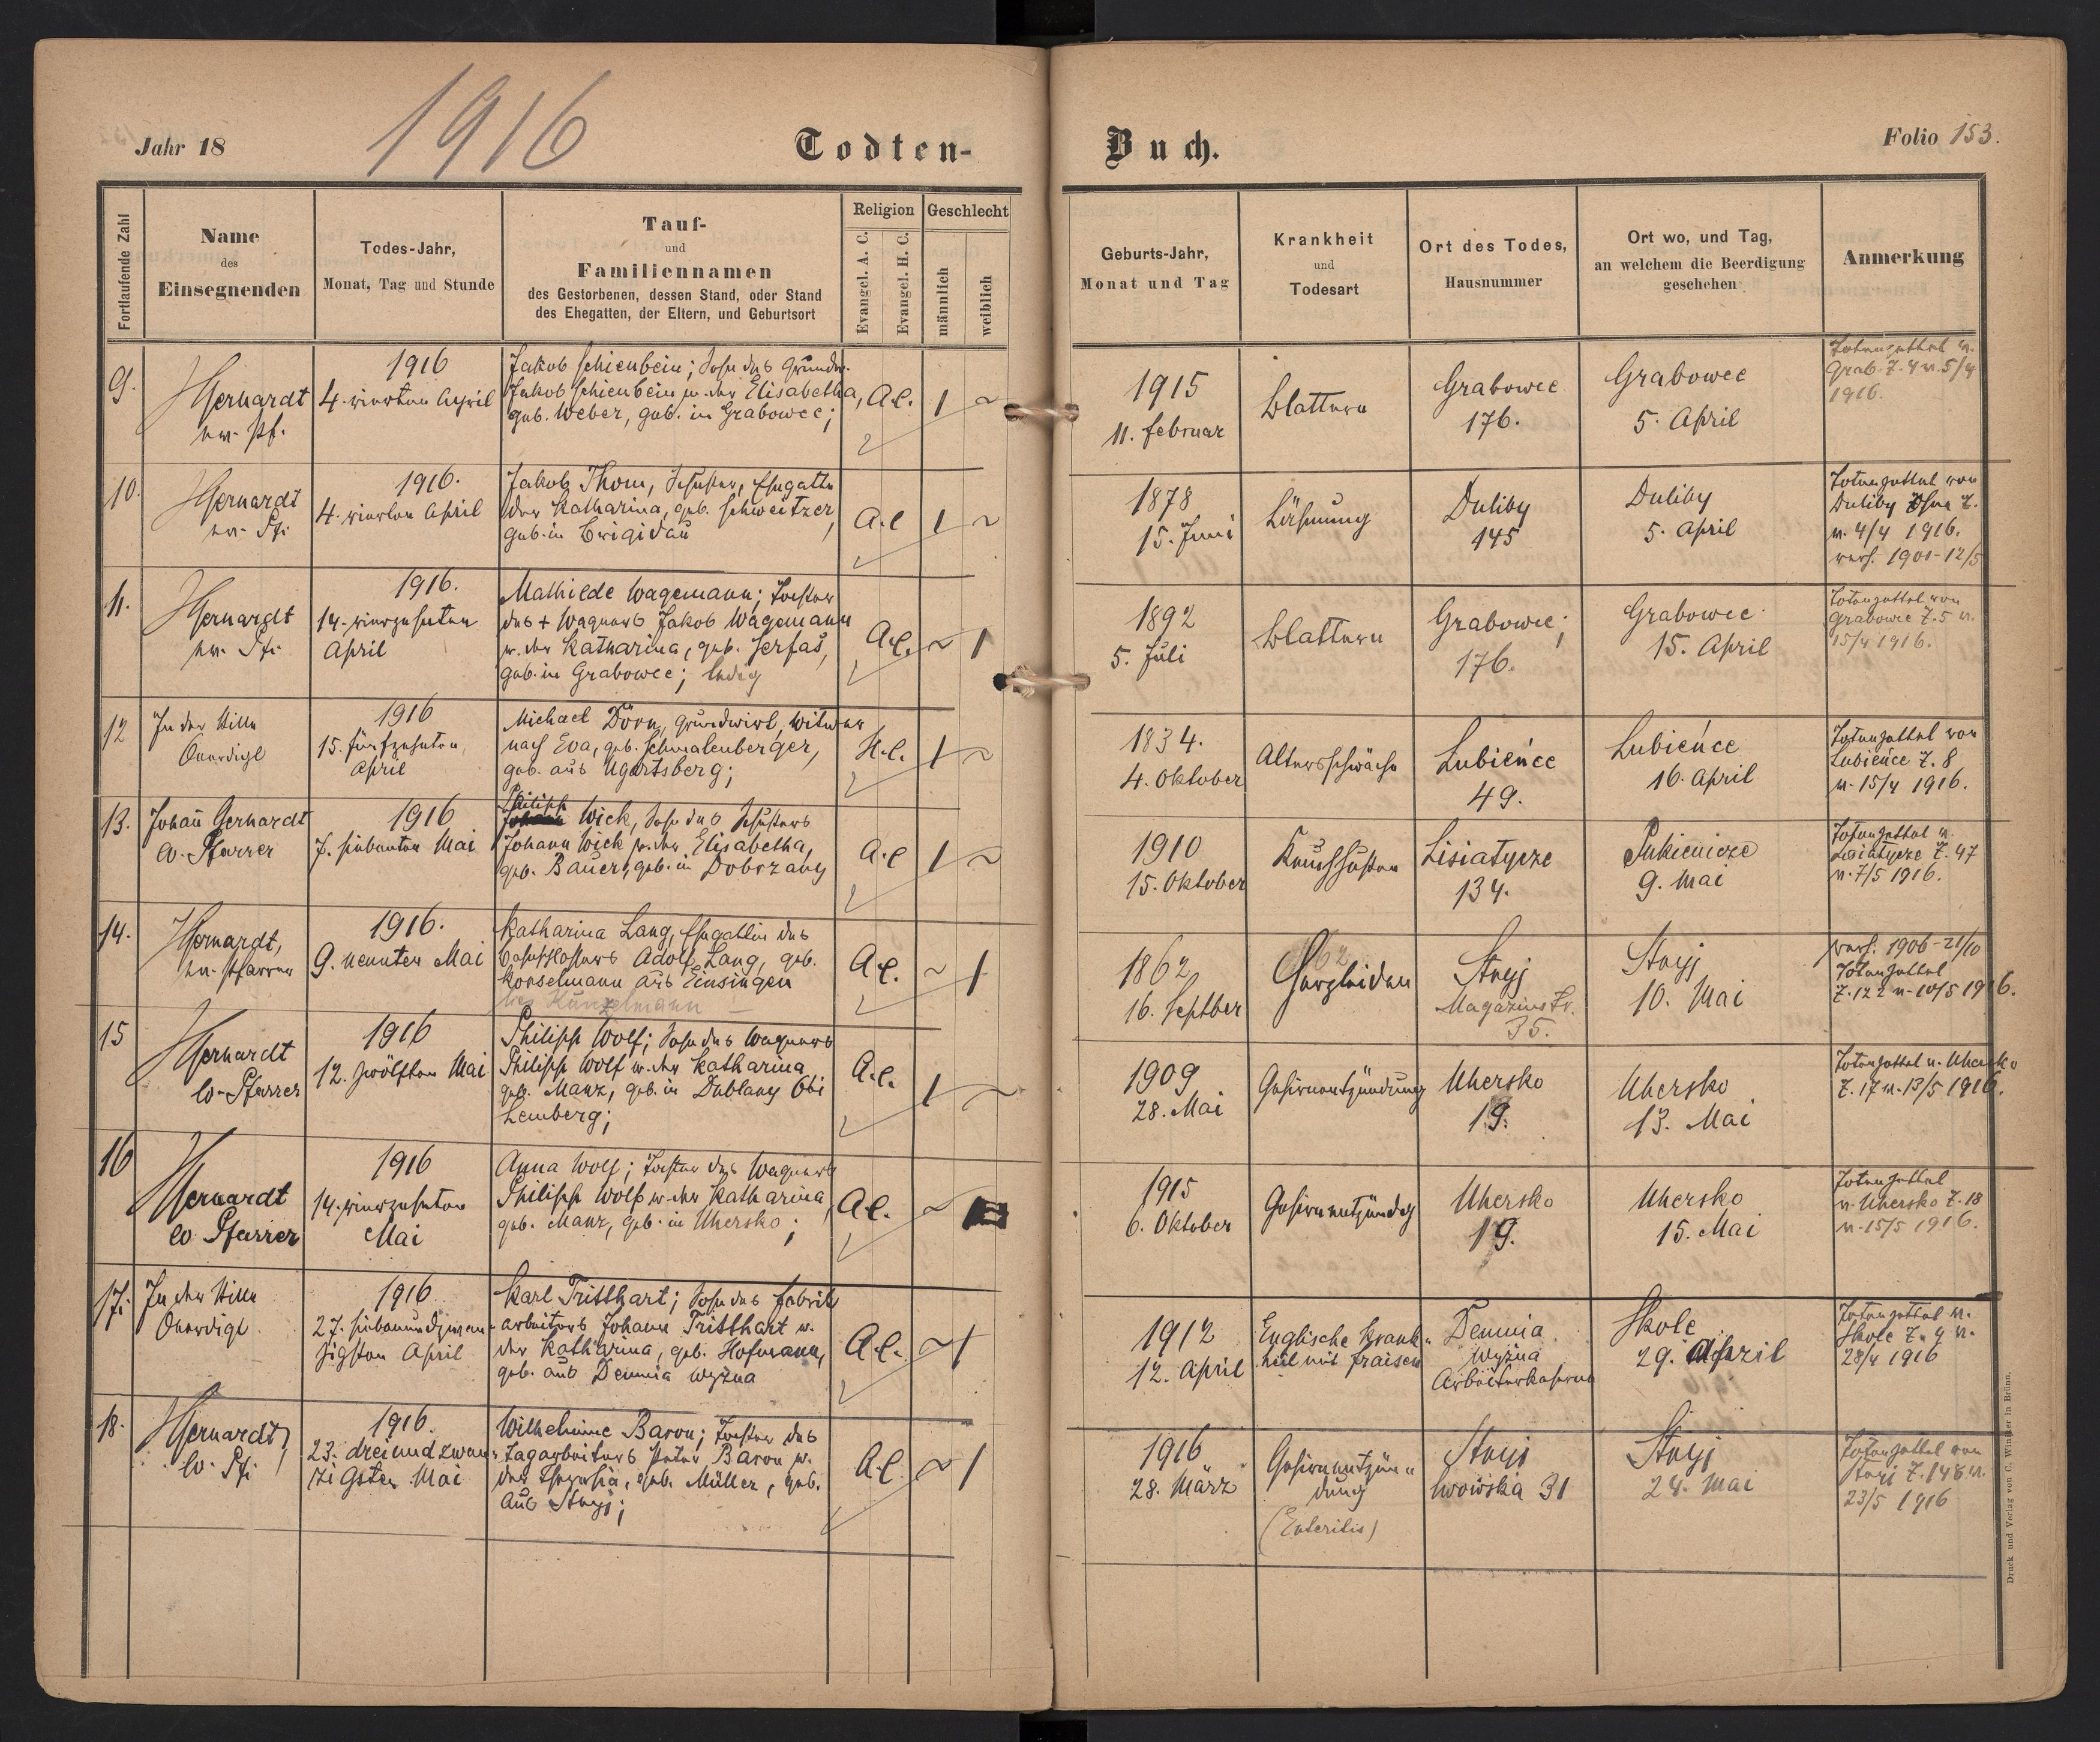 Jahr 18
1916
Todten-
Buch.
Folio 153.
Fortlaufende Zahl
Name
des
Einsegnenden
Todes-Jahr,
Monat, Tag und Stunde
Tauf-
und
Familiennamen
des Gestorbenen, dessen Stand, oder Stand
des Ehegatten, der Eltern, und Geburtsort
Religion
Evangel. A. C.
Evangel. H. C.
Geschlecht
männlich
weiblich
Geburts-Jahr,
Monat und Tag
Krankheit
und
Todesart
Ort des Todes,
Hausnummer
Ort wo, und Tag,
an welchem die Beerdigung
geschehen
Anmerkung
9.
HGerhardt
ev. Pf.
1916
4. vierten April
Jakob Schienbein; Sohn des Grundw.
Jakob Schienbein u. der Elisabetha,
geb. Weber, geb. in Grabowce;
A.C.
1
~
1915
11. Februar
Blattern
Grabowce
176.
Grabowce
5. April
Totenzettel v.
Grab. Z. 4 v. 5/4
1916.
10.
HGerhardt
ev. Pf.
1916.
4. vierten April
Jakob Thom, Schuster, Ehegatte
der Katharina, geb. Schweitzer,
geb. in Brigidau
A.C
1
~
1878
15. Juni
Lähmung
Duliby
145
Duliby
5. April
Totenzettel von
Duliby Z.
v. 4/4 1916.
verh. 1901-12/5
11.
HGerhardt
ev. Pf.
1916.
14. vierzehnten
April
Mathilde Wagemann; Tochter
des + Wagners Jakob Wagemann
u. der Katharina, geb. Serfas,
geb. in Grabowce; ledig
A.C.
~
1
1892
5. Juli
Blattern
Grabowce;
176.
Grabowce
15. April
Totenzettel von
Grabowce Z. 5 v.
15/4 1916.
12
In der Stille
beerdigt
1916
15. fünfzehnten
April
Michael Dörn, Grundwirt, Witwer
nach Eva, geb. Schmalenberger,
geb. aus Ugartsberg;
H.C.
1
~
1834.
4. Oktober
Altersschwäche
Lubieńce
49.
Lubieńce
16. April
Totenzettel von
Lubieńce Z. 8
v. 15/4 1916.
13.
Johann Gerhardt
ev. Pfarrer
1916
7. siebenten Mai
Philipp
Johann Wick, Sohn des Schusters
Johann Wick u. der Elisabetha,
geb. Bauer, geb. in Dobrzany
A.C
1
~
1910
15. Oktober
Keuchhusten
Lisiatycze
134.
Pukienicze
9. Mai
Totenzettel v.
Lisiatycze Z. 47
v. 7/5 1916.
14.
HGerhardt,
ev. Pfarrer
1916.
9. neunten Mai
Katharina Lang, Ehegattin des
Adolf Lang, geb.
Konselmann aus Einsingen
Kunzelmann
A.C.
~
1
1862
16. Septber
Herzleiden
Stryj
Magazinstr.
35.
Stryj
10. Mai
verh. 1906-21/10
Totenzettel
Z. 122 v. 10/5 1916.
15
HGerhardt
ev. Pfarrer
1916
12. zwölften Mai
Philipp Wolf; Sohn des Wagners
Philipp Wolf u. der Katharina
geb. Manz, geb. in Dublany bei
Lemberg;
A.C.
1
~
1909
28. Mai
Gehirnentzündung
Uhersko
19.
Uhersko
13. Mai
Totenzettel v. Uhersko
Z. 17 v. 13/5 1916.
16
HGerhardt
ev. Pfarrer
1916
14. vierzehnten
Mai
Anna Wolf; Tochter des Wagners
Philipp Wolf u. der Katharina,
geb. Manz, geb. in Uhersko;
A.C.
~
1915
6. Oktober
Gehirnentzündg
Uhersko
19.
Uhersko
15. Mai
Totenzettel
v. Uhersko Z. 18
v. 15/5 1916.
17.
In der Stille
beerdigt
1916
27. siebenundzwan-
zigsten April
Karl Tritthart; Sohn des Fabrik
arbeiters Johann Tritthart u.
der Katharina, geb. Hofmann,
geb. aus Demnia wyżna
A.C.
~
1
1912
12. April
Englische Krank-
heit mit Fraisen
Demnia
wyżna
Arbeiterkaserne
Skole
29. April
Totenzettel v.
Skole Z. 4 v.
28/4 1916
18.
HGerhardt,
ev. Pf.
1916.
23. dreiundzwan-
zigsten Mai
Wilhelmine Baron; Tochter des
Tagarbeiters Peter Baron u.
der Theresia, geb. Müller, geb.
aus Stryj;
A.C.
~
1
1916
28. März
Gehirnentzün-
dung
(Enteritis)
Stryj
lwowska 31
Stryj
24. Mai
Totenzettel von
Stryj Z. 148 v.
23/5 1916
Druck und Verlag von C. Winiker in Brünn.